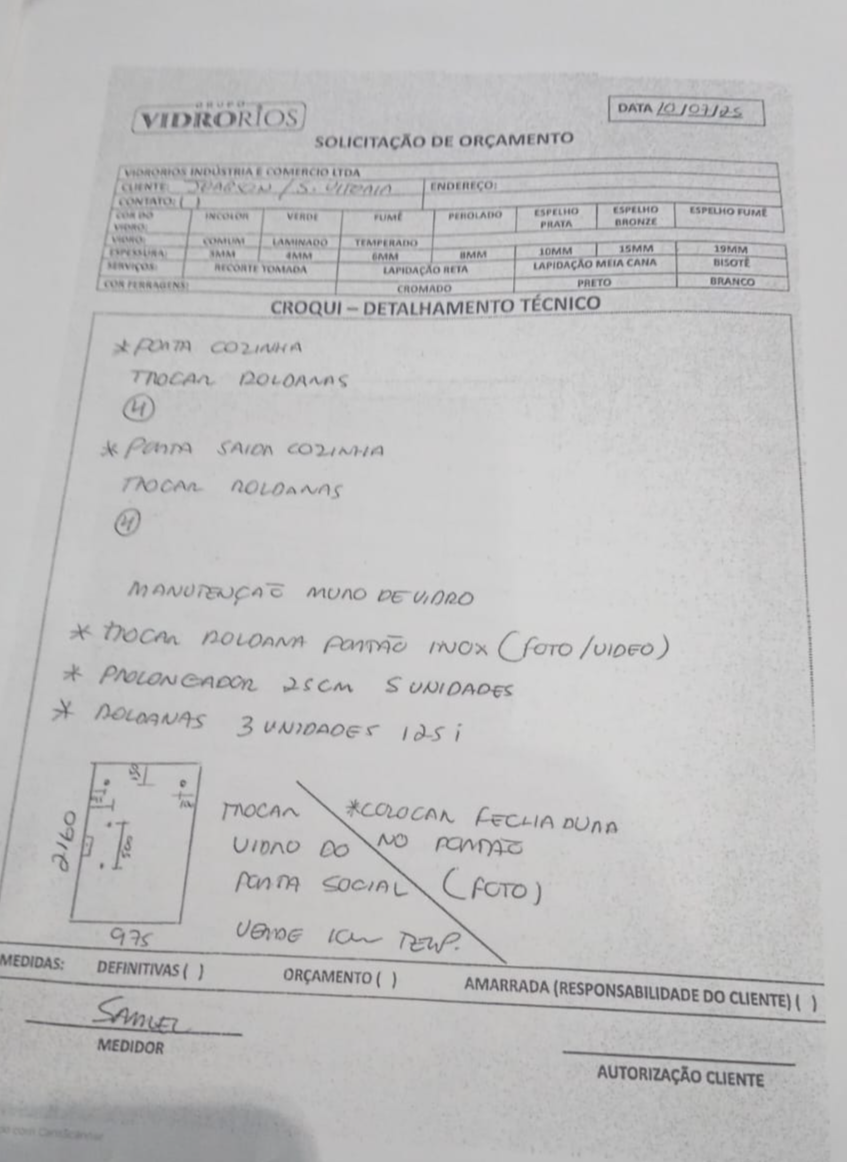 GRUPO
VIDRORIOS
DATA 10/07/25
SOLICITAÇÃO DE ORÇAMENTO
VIDRORIOS INDÚSTRIA E COMERCIO LTDA
CLIENTE: / S. ENDEREÇO:
CONTATO: ( )
COR DO VIDRO: INCOLOR VERDE FUMÊ PEROLADO ESPELHO PRATA ESPELHO BRONZE ESPELHO FUMÊ
VIDRO: COMUM LAMINADO TEMPERADO
ESPESSURA: 3MM 4MM 6MM 8MM 10MM 15MM 19MM
SERVIÇOS: RECORTE TOMADA LAPIDAÇÃO RETA LAPIDAÇÃO MEIA CANA BISOTÊ
COR FERRAGENS: CROMADO PRETO BRANCO
CROQUI – DETALHAMENTO TÉCNICO
* PORTA COZINHA
TROCAR ROLDANAS
4
* PORTA SAIDA COZINHA
TROCAR ROLDANAS
4
MANUTENÇAO MURO DE VIDRO
* TROCAR ROLDANA PORTÃO INOX (FOTO/VIDEO)
* PROLONGADOR 25CM 5 UNIDADES
* ROLDANAS 3 UNIDADES 125i
2160
975
TROCAR
VIDRO DO
PORTA SOCIAL
VERDE 10m TEMP.
*COLOCAR FECHADURA
NO PORTÃO
(FOTO)
MEDIDAS: DEFINITIVAS ( ) ORÇAMENTO ( ) AMARRADA (RESPONSABILIDADE DO CLIENTE) ( )
SAMUEL
MEDIDOR
AUTORIZAÇÃO CLIENTE